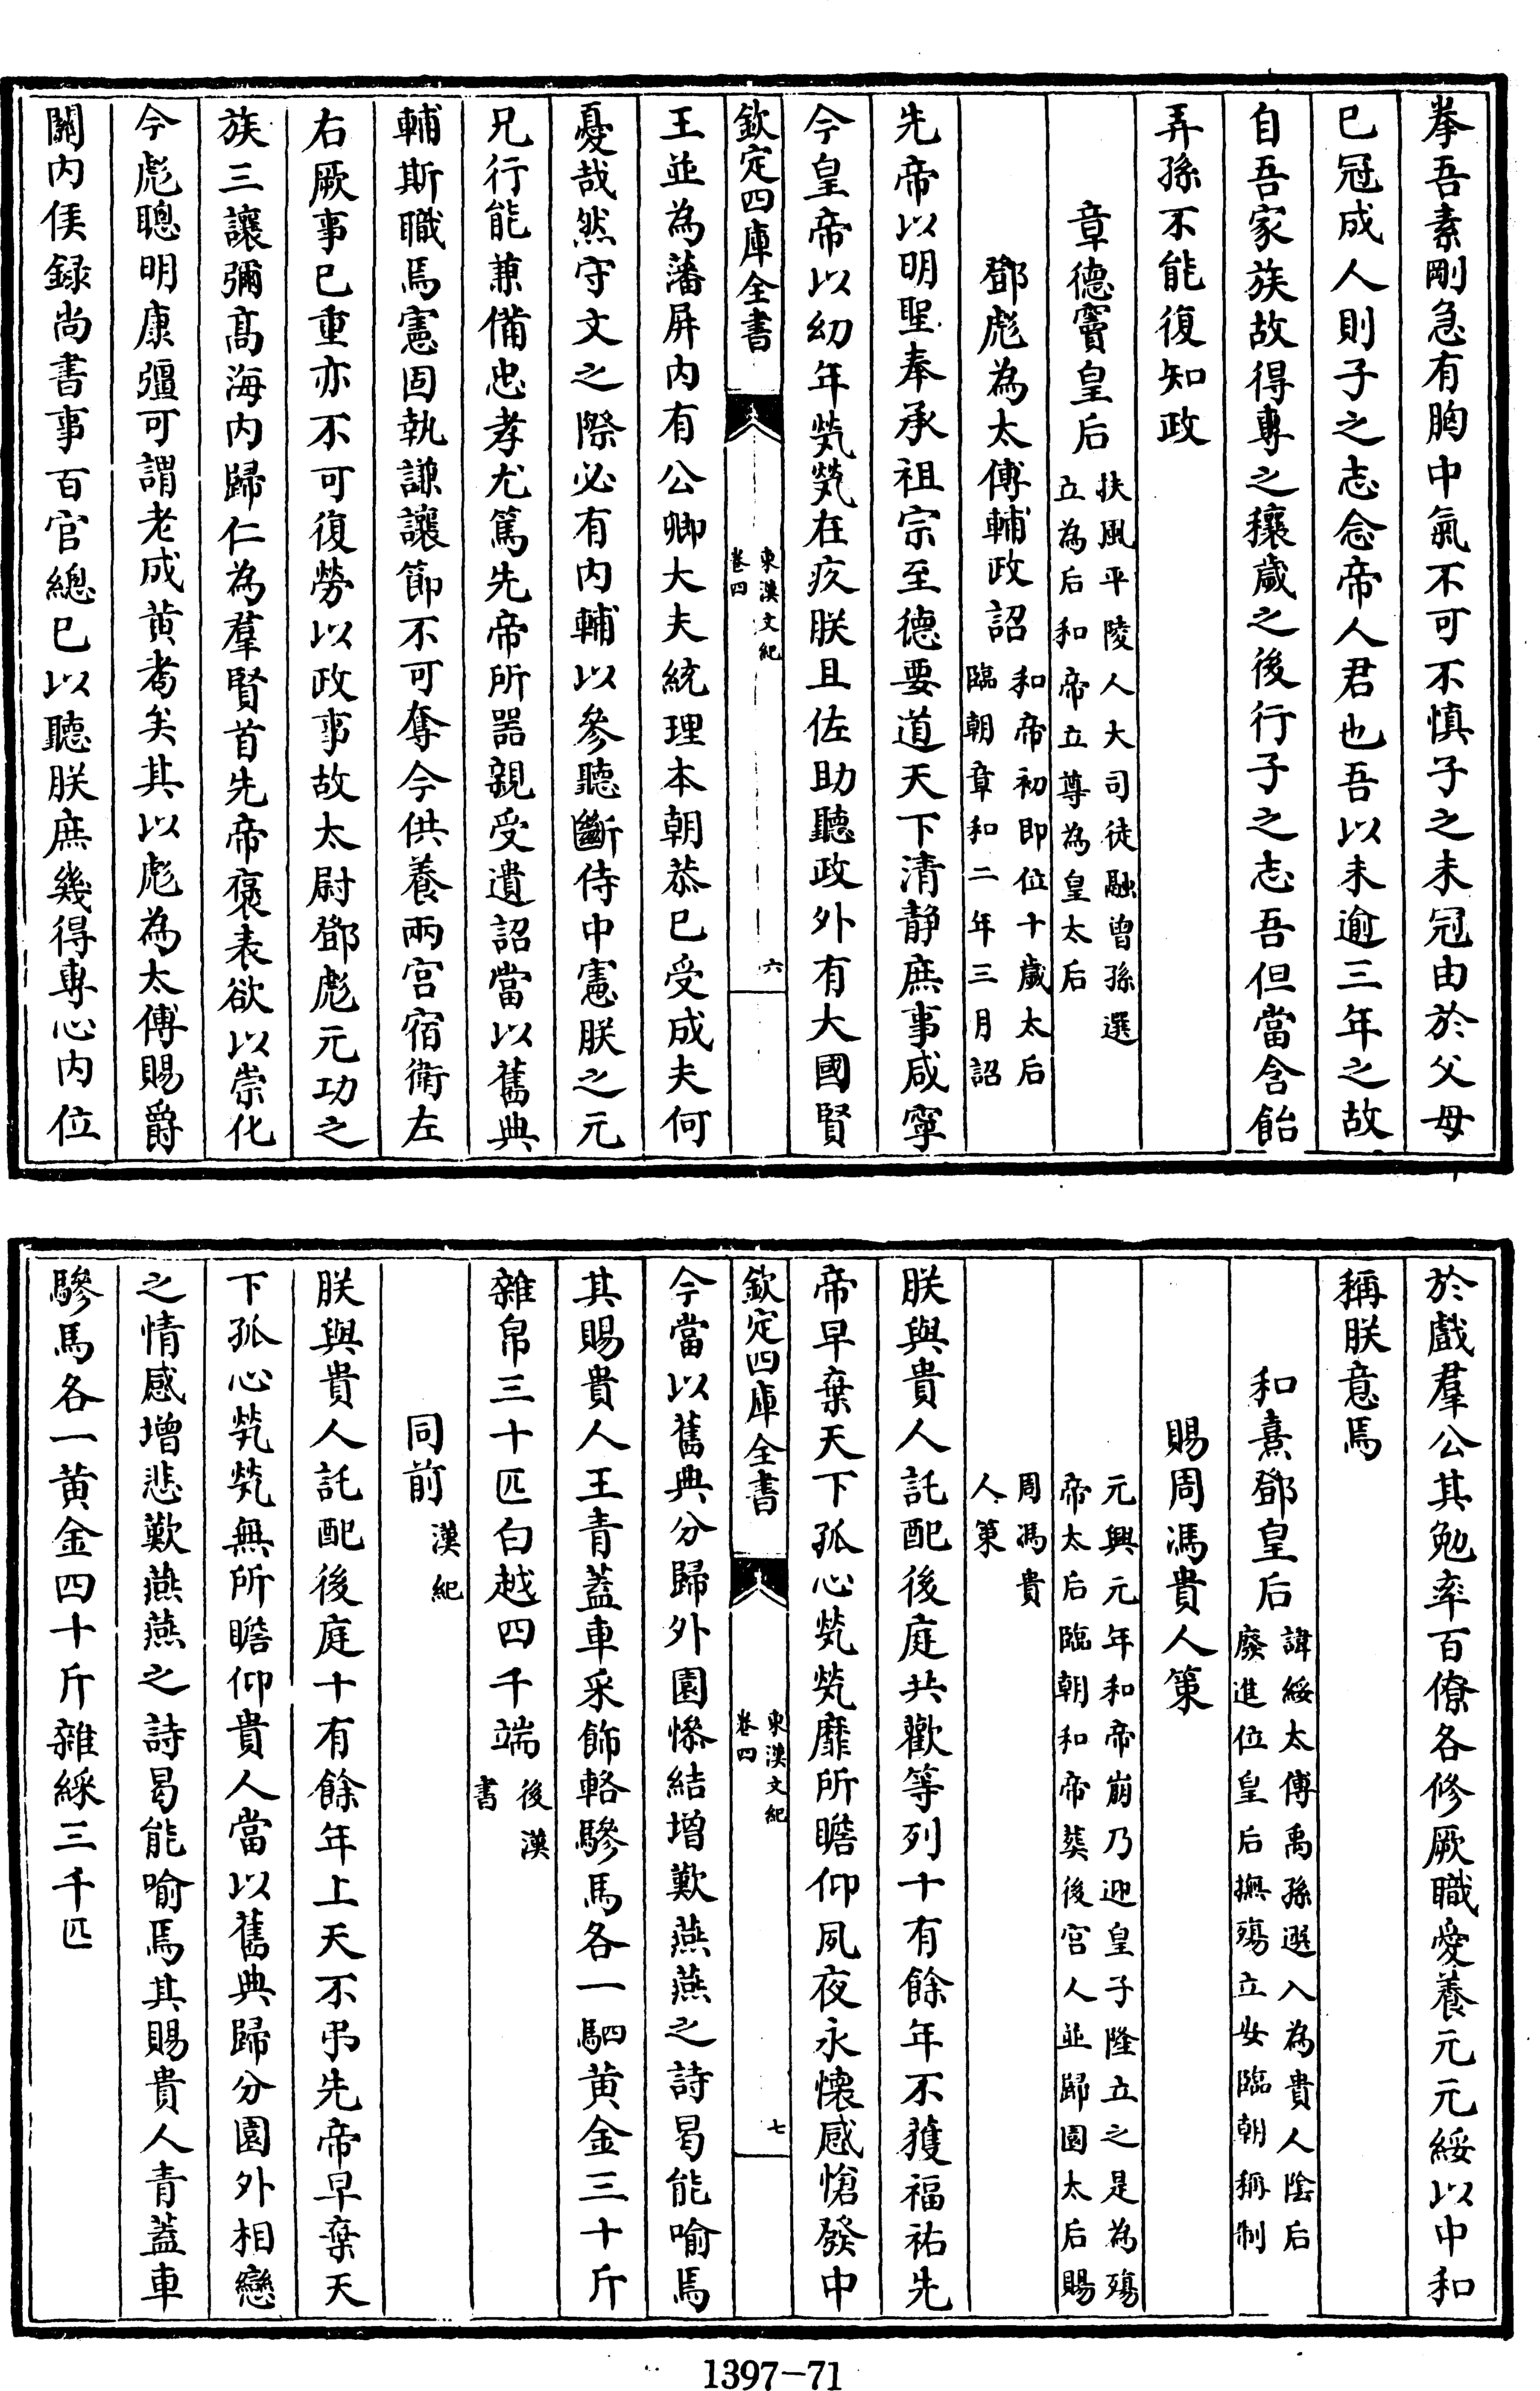 拳吾素剛急有胸中氣不可不慎子之未冠由於父母
已冠成人則子之志念帝人君也吾以未逾三年之故
自吾家族故得專之穰歲之後行子之志吾但當含飴
弄孫不能復知政
章德竇皇后扶風平陵人大司徒融曾孫選
立為后和帝立尊為皇太后
鄧彪為太傅輔政詔和帝初即位十歲太后
臨朝章和二年三月詔
先帝以明聖奉承祖宗至德要道天下清静庶事咸寧
今皇帝以幼年煢煢在疚朕且佐助聽政外有大國賢
欽定四庫全書
東漢文紀
卷四
六
王並為藩屏内有公卿大夫統理本朝恭已受成夫何
憂哉然守文之際必有内輔以參聽斷侍中憲朕之元
兄行能兼備忠孝尤篤先帝所器親受遺詔當以舊典
輔斯職焉憲固執謙讓節不可奪今供養兩宫宿衛左
右厥事已重亦不可復勞以政事故太尉鄧彪元功之
族三讓彌髙海内歸仁為羣賢首先帝褒表欲以崇化
今彪聰明康彊可謂老成黄耇矣其以彪為太傅賜爵
關内侯録尚書事百官總已以聽朕庶幾得專心内位
於戲羣公其勉率百僚各修厥職愛養元元綏以中和
稱朕意焉
和熹鄧皇后諱綏太傅禹孫選入為貴人陰后
廢進位皇后撫殤立安臨朝稱制
賜周馮貴人策
元興元年和帝崩乃迎皇子隆立之是為殤
帝太后臨朝和帝葬後宫人並歸園太后賜
周馮貴
人策
朕與貴人託配後庭共歡等列十有餘年不獲福祐先
帝早棄天下孤心煢煢靡所瞻仰夙夜永懷感愴發中
欽定四庫全書
東漢文紀
卷四
七
今當以舊典分歸外園慘結增歎燕燕之詩曷能喻焉
其賜貴人王青蓋車采飾輅驂馬各一駟黄金三十斤
雜帛三十匹白越四千端後漢
書
同前漢紀
朕與貴人託配後庭十有餘年上天不弔先帝早棄天
下孤心煢煢無所瞻仰貴人當以舊典歸分園外相戀
之情感增悲歎燕燕之詩曷能喻焉其賜貴人青蓋車
驂馬各一黄金四十斤雜綵三千匹
1397-71